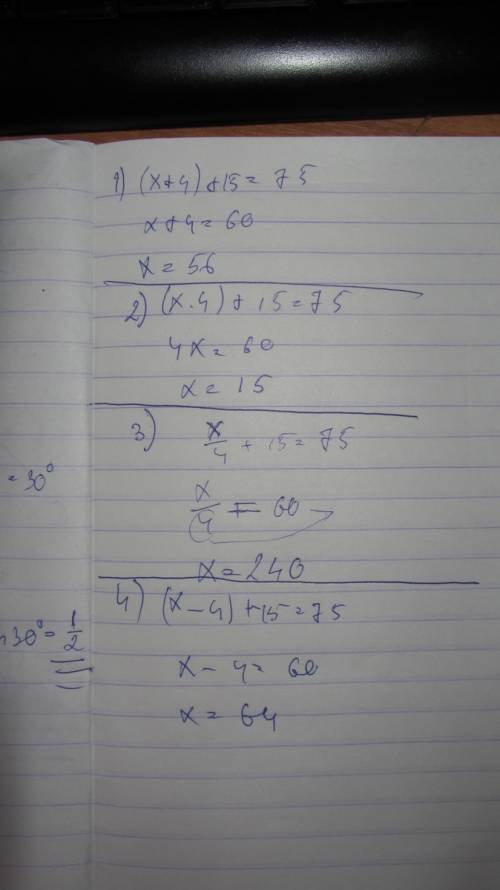 1) (x+4)+15=75
x+4=60
x=56
2) (x·4)+15=75
4x=60
x=15
3) x/4+15=75
x/4=60
x=240
4) (x-4)+15=75
x-4=60
x=64
=30°
30°=1/2